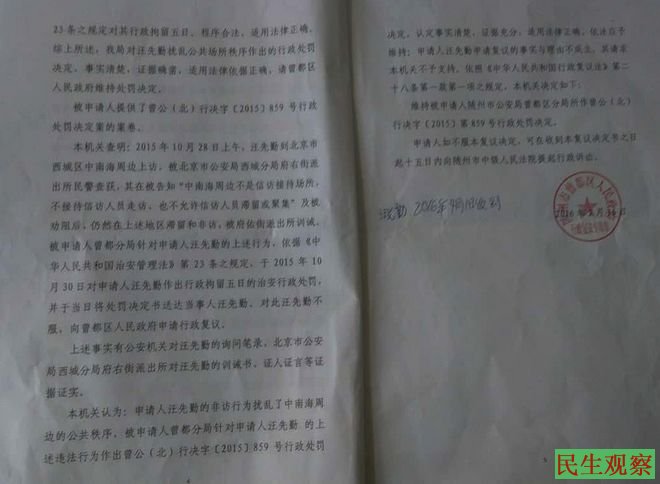 23 条之规定对其行政拘留五日，程序合法，适用法律正确。
综上所述，我局对汪先勤扰乱公共场所秩序作出的行政处罚
决定，事实清楚，证据确凿，适用法律依据正确，请曾都区
人民政府维持处罚决定。
被申请人提供了曾公（北）行决字〔2015〕859 号行政
处罚决定案的案卷。
本机关查明：2015 年 10 月 28 日上午，汪先勤到北京市
西城区中南海周边上访，被北京市公安局西城分局府右街派
出所民警查获，其在被告知“中南海周边不是信访接待场所，
不接待信访人员走访，也不允许信访人员滞留或聚集”及被
劝阻后，仍然在上述地区滞留和非访，被府佑街派出所训诫。
被申请人曾都分局针对申请人汪先勤的上述行为，依据《中
华人民共和国治安管理法》第 23 条之规定，于 2015 年 10
月 30 日对申请人汪先勤作出行政拘留五日的治安行政处罚，
并于当日将处罚决定书送达当事人汪先勤。对此汪先勤不
服，向曾都区人民政府申请行政复议。
上述事实有公安机关对汪先勤的询问笔录、北京市公安
局西城分局府右街派出所对汪先勤的训诫书、证人证言等证
据证实。
本机关认为：申请人汪先勤的非访行为扰乱了中南海周
边的公共秩序，被申请人曾都分局针对申请人汪先勤 的上
述违法行为作出曾公（北）行决字〔2015〕859 号行政处罚
决定，认定事实清楚，证据充分，适用法律正确，依法应予
维持；申请人汪先勤申请复议的事实与理由不成立，其请求
本机关不予支持。依照《中华人民共和国行政复议法》第二
十八条第一款第一项之规定，本机关决定如下：
维持被申请人随州市公安局曾都区分局所作曾公（北）
行决字〔2015〕第 859 号行政处罚决定。
申请人如不服本复议决定，可在收到本复议决定书之日
起十五日内向随州市中级人民法院提起行政诉讼。
曾都区人民政府
民生观察